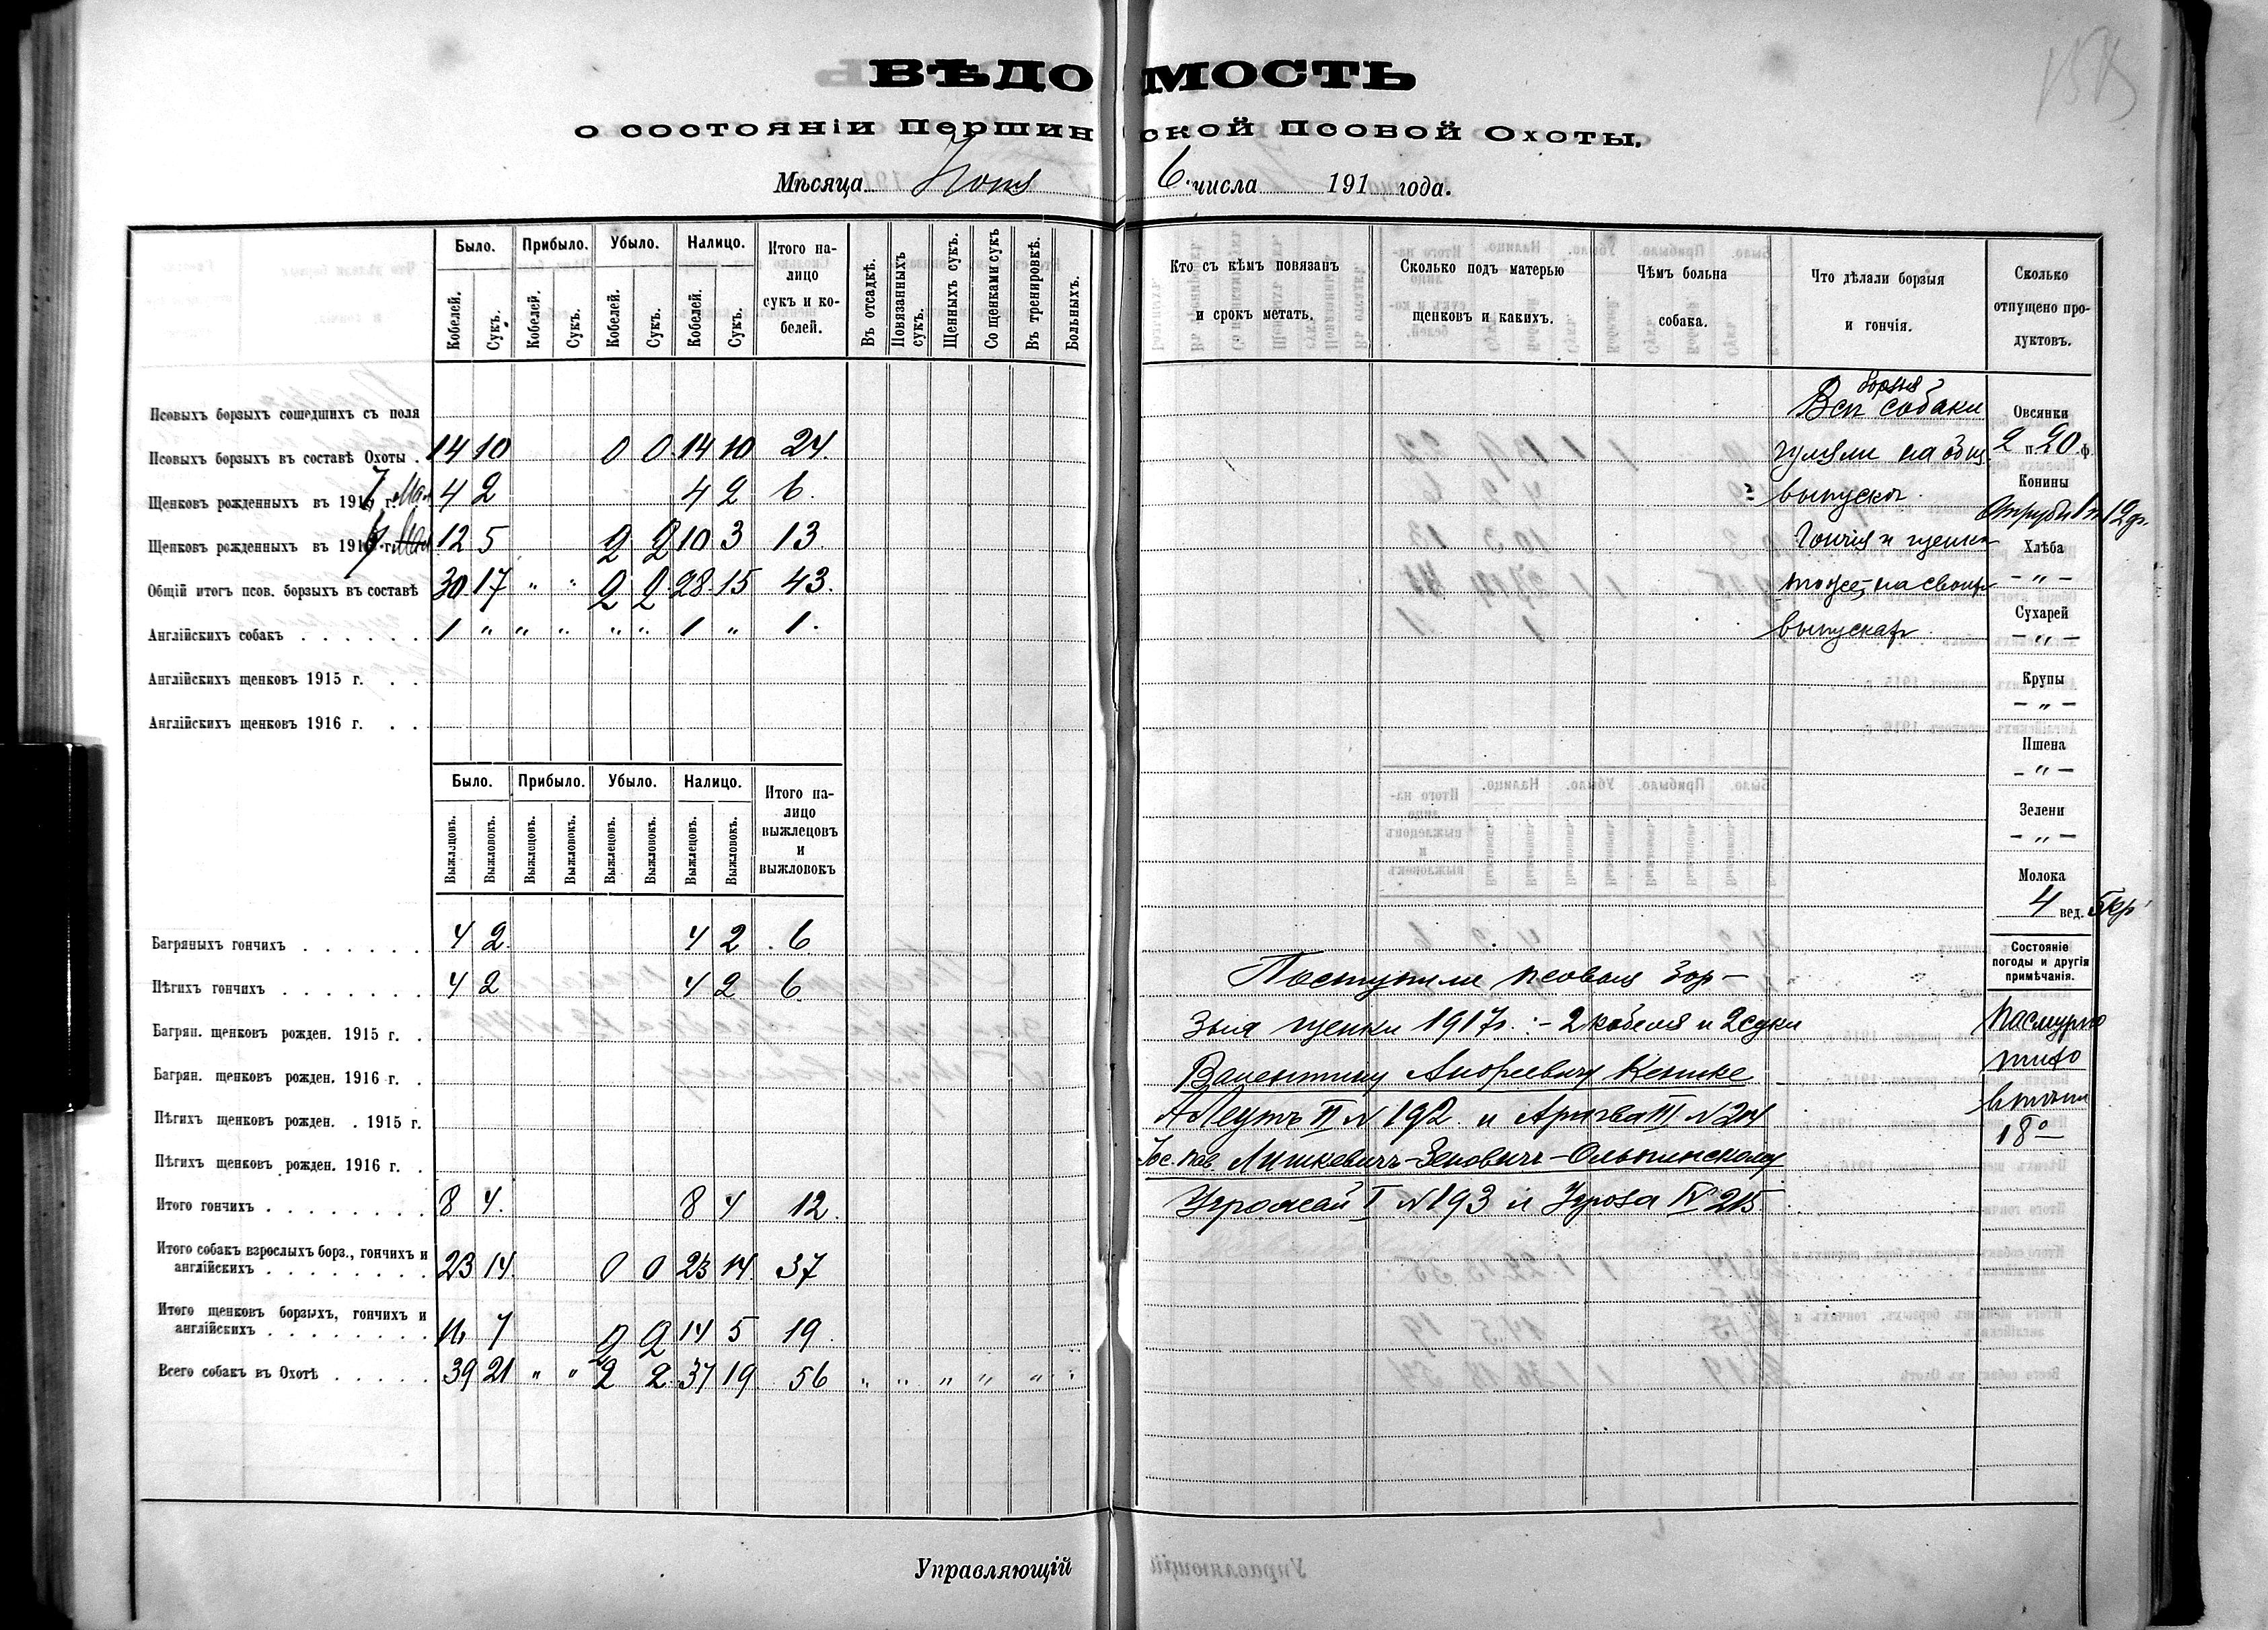 ВѢДОМОСТЬ
о состояніи Першинской Псовой Охоты.
Мѣсяца Іюня 6 числа 191 года.
Было. Прибыло. Убыло. Налицо. Итого на-лицо сукъ и ко-белей. Въ отсадкѣ. Повязанныхъ сукъ. Щенныхъ сукъ. Со щенками сукъ Въ тренировкѣ. Больныхъ.
Кобелей. Сукъ. Кобелей. Сукъ. Кобелей. Сукъ. Кобелей. Сукъ.
Псовыхъ борзыхъ сошедшихъ съ поля
Псовыхъ борзыхъ въ составѣ Охоты . 14 10 0 0 14 10 24.
Щенковъ рожденныхъ въ 1917 г. 4 2 4 2 6.
Щенковъ рожденныхъ въ 191 г. 12 5 2 2 10 3 13.
Общій итогъ псов. борзыхъ въ составѣ 30 17 " " 2 2 28 15 43.
Англійскихъ собакъ . . . . . . 1 " " " " " 1 " 1.
Англійскихъ щенковъ 1915 г. . .
Англійскихъ щенковъ 1916 г. . .
Было. Прибыло. Убыло. Налицо. Итого на-лицо выжлецовъ и выжловокъ
Выжлецовъ. Выжловокъ. Выжлецовъ. Выжловокъ. Выжлецовъ. Выжловокъ. Выжлецовъ. Выжловокъ.
Багряныхъ гончихъ . . . . . . 4 2. 4 2 6
Пѣгихъ гончихъ . . . . . . . 4 2 4 2 6
Багрян. щенковъ рожден. 1915 г. .
Багрян. щенковъ рожден. 1916 г. .
Пѣгихъ щенковъ рожден. . 1915 г.
Пѣгихъ щенковъ рожден. 1916 г. .
Итого гончихъ . . . . . . . . 8 4. 8 4 12.
Итого собакъ взрослыхъ борз., гончихъ и
англійскихъ . . . . . . . . 23 14. 0 0 23 14 37
Итого щенковъ борзыхъ, гончихъ и
англійскихъ . . . . . . . . 16 7 2 2 14 5 19.
Всего собакъ въ Охотѣ . . . . . 39 21 " " 2 2 37 19 56 " " " " " "
Управляющій
Кто съ кѣмъ повязанъ и срокъ метать.
Сколько подъ матерью щенковъ и каких.
Чѣмъ больна собака.
Что дѣлали борзыя и гончія.
Сколько отпущено про-дуктовъ.
борзыя
Всѣ собаки
гуляли на общ.
выпускѣ.
Гончія и щенки
тоже, на своихъ
выпускахъ.
Овсянки
2 п. 20 ф.
Конины
Отруби 1 п 12 ф.
Хлѣба
— " —
Сухарей
— " —
Крупы
— " —
Пшена
— " —
Зелени
— " —
Молока
4 вед. 5 кр
Состояніе погоды и другія примѣчанія.
Пасмурно
тихо
18°
Поступили псовыя бор-
зыя щенки 1917 г. :- 2 кобеля и 2 суки
Валентину Андреевичу
Алеутъ II № 192. и III № 214
Ольпинскому
Угрожай I № 193 и Угроза IV 215